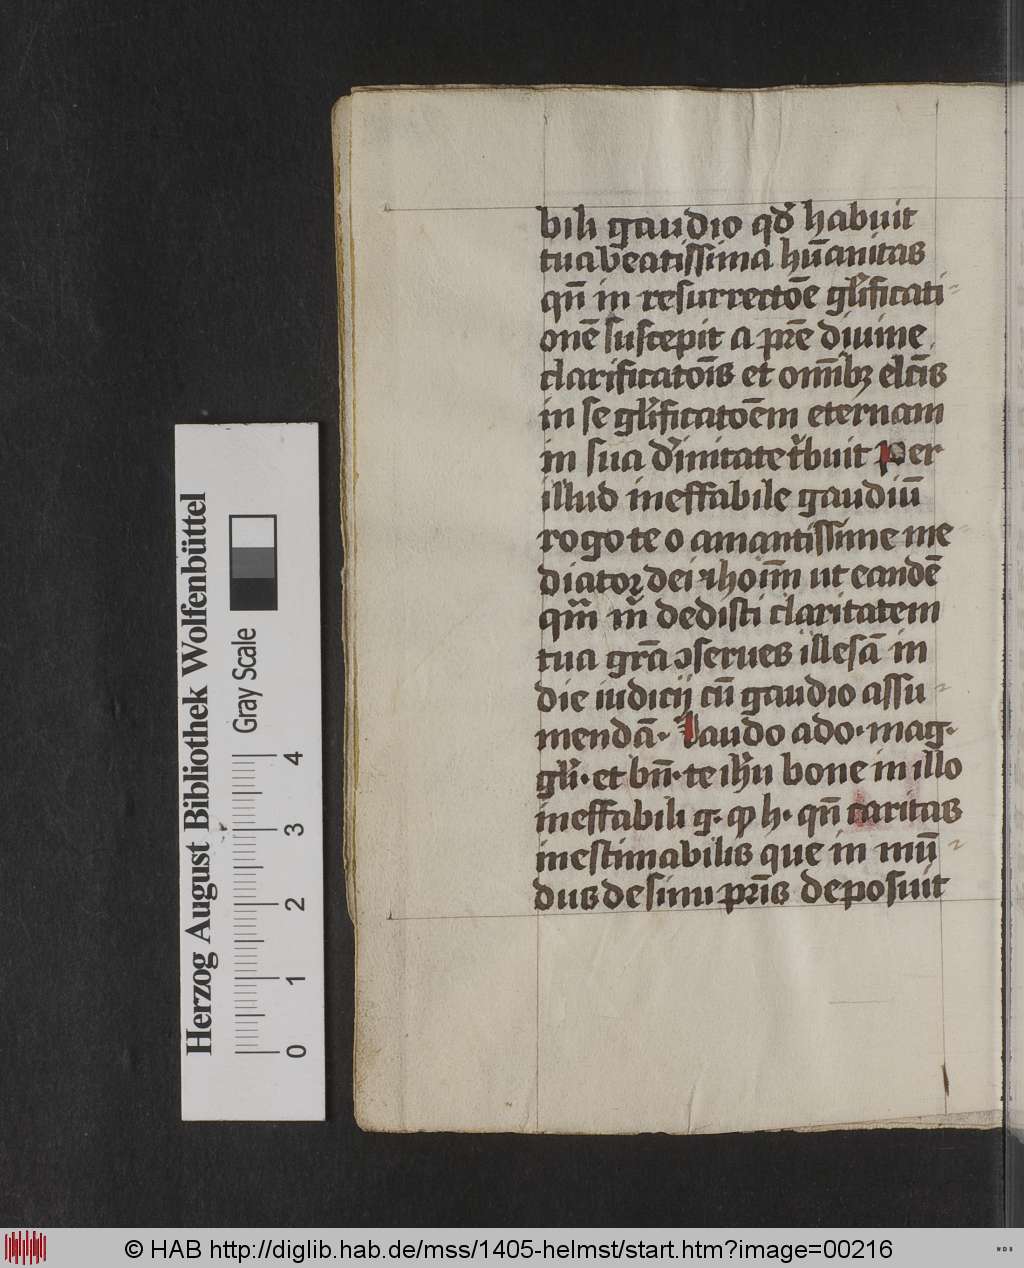 bili gaudio qḋ habuit
tua beatissima hūanitas
qn̄ in resurrectōe gl̄ificati
onē suscepit a pr̄e diuine
clarificatōīs et om̄ibꝫ elc̄is
in se gl̄ificatōem eternam
in sua d̄initate t̄buit Per
illud ineffabile gaudiū
rogo te o amantissime me
diatoꝝ dei ⁊ hoīm ut eandē
qm̄ m̄ dedisti claritatem
tua gr̄a ꝯserues illesā in
die iudicij cū gaudio assu
mendā· Laudo ado· mag·
gl̄i· et bn̄· te ih̄u bone in illo
ineffabili g· ꝙ h· qn̄ caritas
inestimabilis que in mū
dus de sinu pr̄is deposuit
Herzog August Bibliothek Wolfenbüttel
Gray Scale
0 1 2 3 4
© HAB http://diglib.hab.de/mss/1405-helmst/start.htm?image=00216